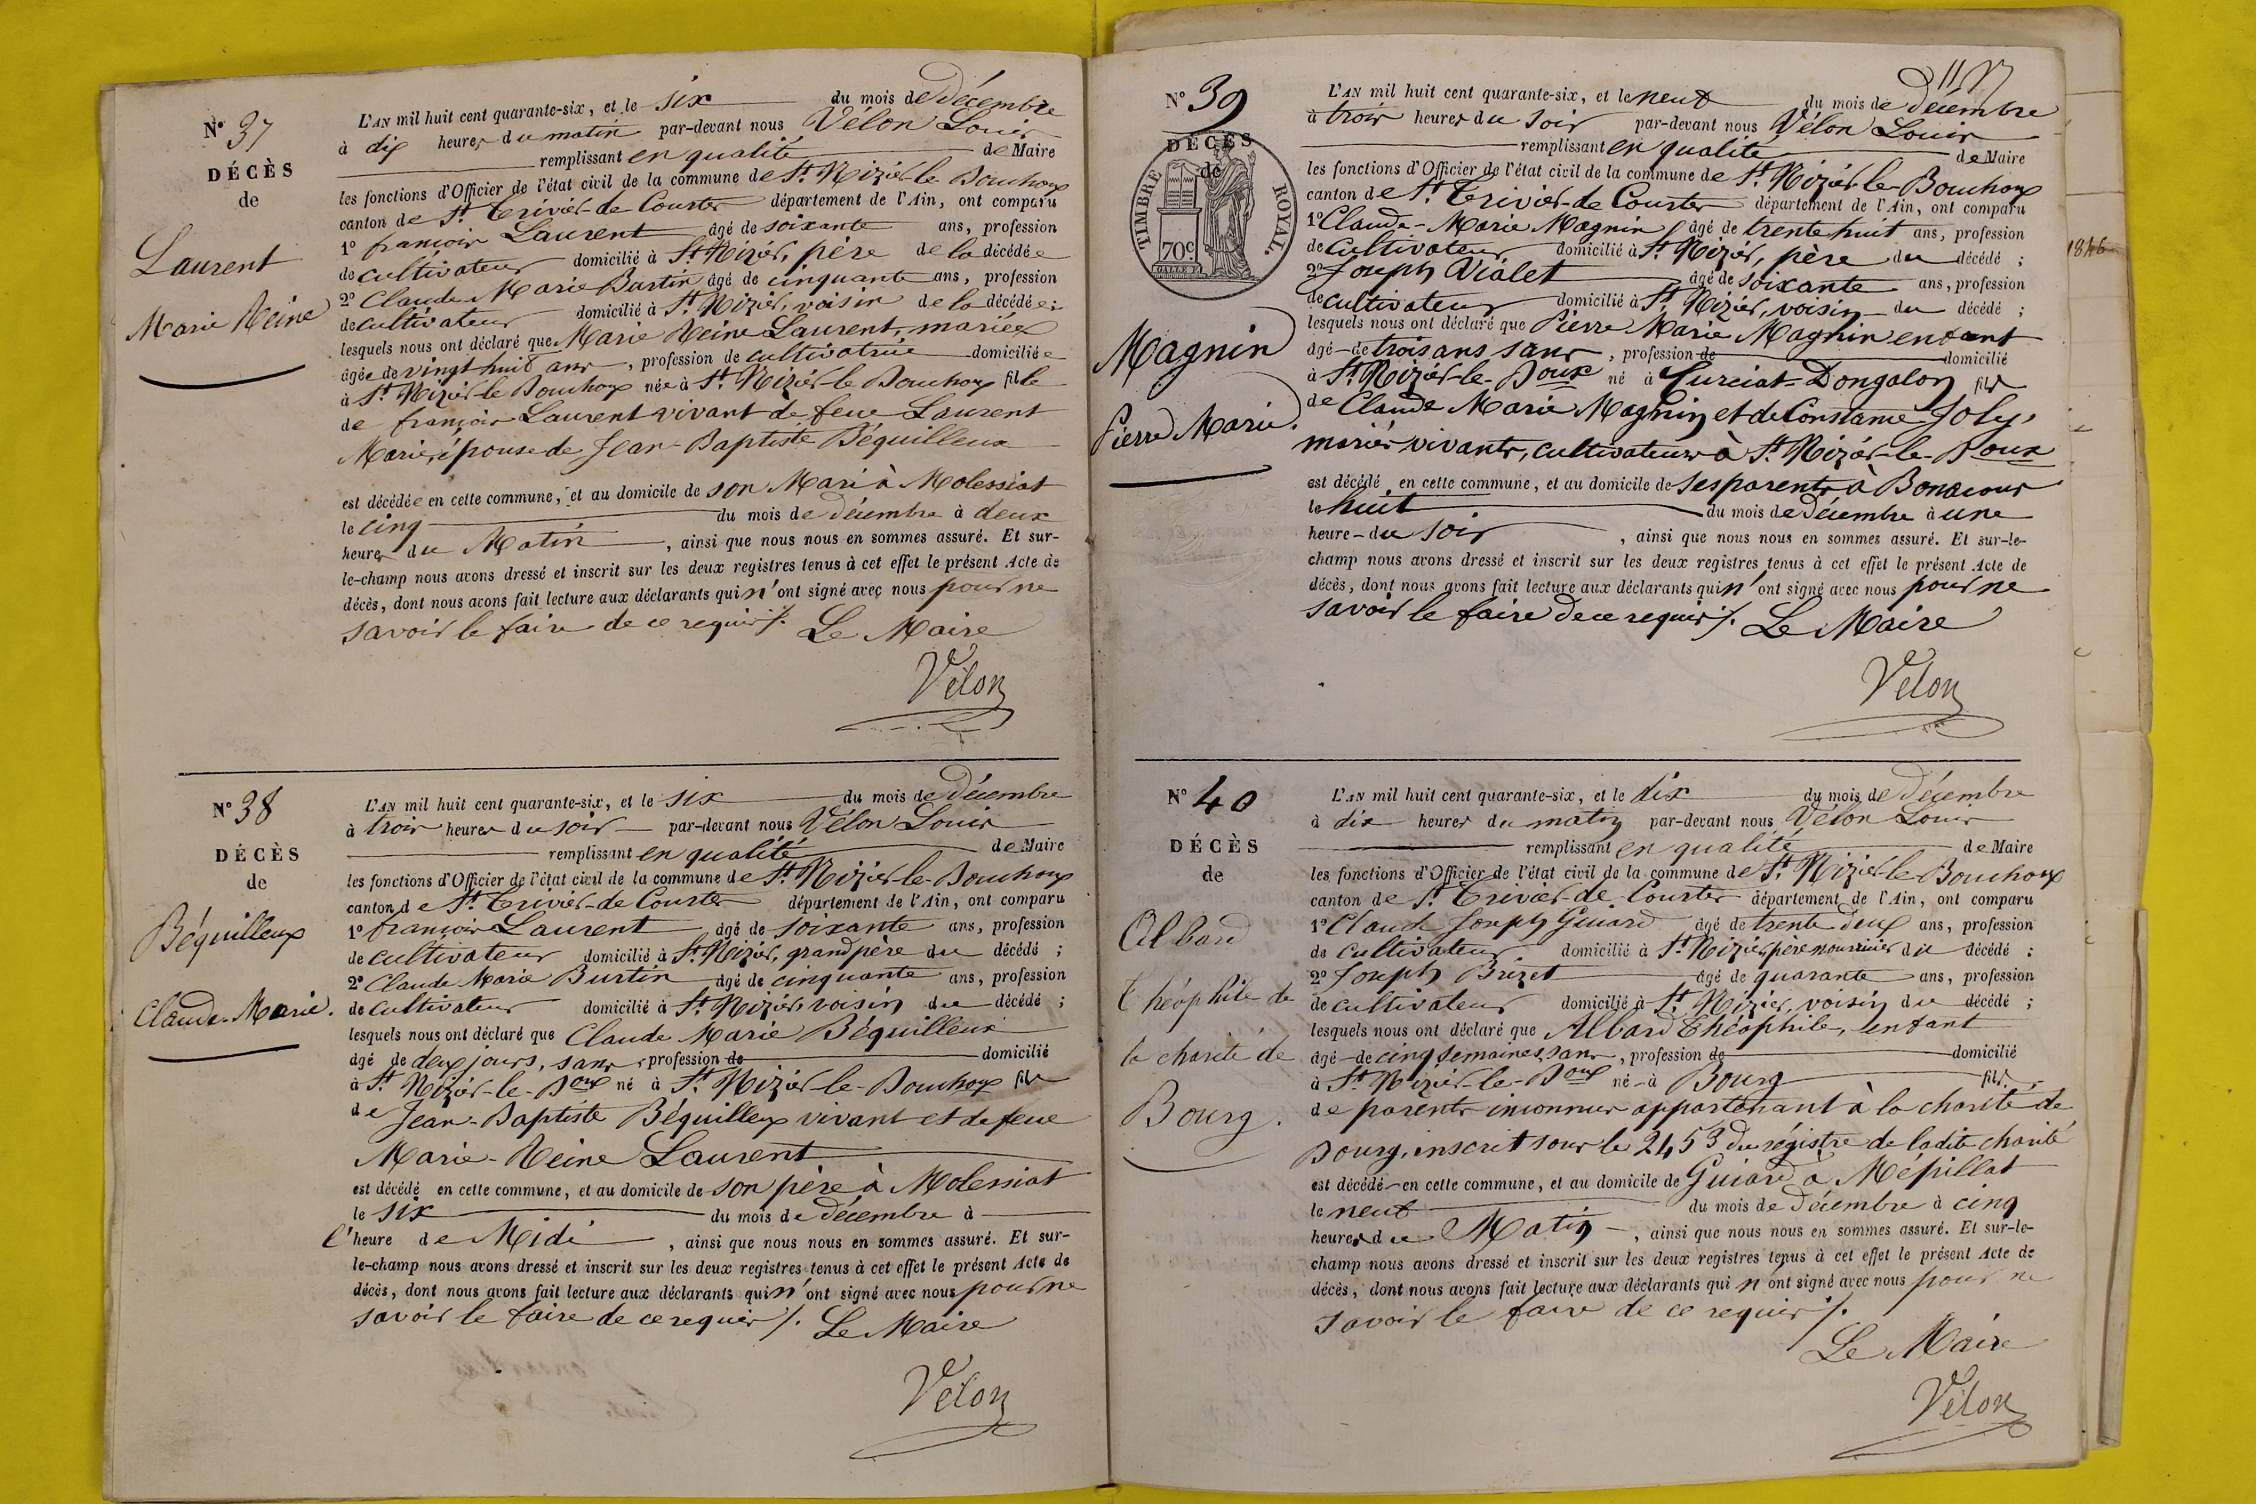 N° 37
DÉCÈS
de
Laurent
Marie Reine
L'AN mil huit cent quarante-six, et le six du mois de Décembre
à dix heures du matin par-devant nous Vélon Louis
remplissant en qualité de Maire
les fonctions d'Officier de l'état civil de la commune de St. Nizier-le-Bouchoux
canton de St. Trivier-de-Courtes département de l'Ain, ont comparu
1° françois Laurent âgé de soixante ans, profession
de cultivateur domicilié à St. Nizier, père de la décédée
2° Claude Marie Burtin âgé de cinquante ans, profession
de cultivateur domicilié à St. Nizier, voisin de la décédée ;
lesquels nous ont déclaré que Marie Reine Laurent, mariée
âgée de vingt huit ans, profession de cultivatrice domiciliée
à St. Nizier-le-Bouchoux née à St. Nizier-le Bouchoux fille
de françois Laurent vivant de feue Laurent
Marie, épouse de Jean-Baptiste Béquilleux
est décédée en cette commune, et au domicile de son Mari à Molessiat
le cinq du mois de Décembre à deux
heures du Matin, ainsi que nous nous en sommes assuré. Et sur-
le-champ nous avons dressé et inscrit sur les deux registres tenus à cet effet le présent Acte de
décès, dont nous avons fait lecture aux déclarants qui n'ont signé avec nous pour ne
savoir le faire de ce requis /. Le Maire
Vélon
N° 38
DÉCÈS
de
Béquilleux
Claude-Marie.
L'AN mil huit cent quarante-six, et le six du mois de Décembre
à trois heures du soir par-devant nous Vélon Louis
remplissant en qualité de Maire
les fonctions d'Officier de l'état civil de la commune de St. Nizier-le-Bouchoux
canton de St. Trivier-de-Courtes département de l'Ain, ont comparu
1° françois Laurent âgé de soixante ans, profession
de cultivateur domicilié à St. Nizier, grand père du décédé ;
2° Claude Marie Burtin âgé de cinquante ans, profession
de cultivateur domicilié à St. Nizier voisin du décédé ;
lesquels nous ont déclaré que Claude Marie Béquilleux
âgé de deux jours, sans profession de domicilié
à St. Nizier-le-Boux né à St. Nizier-le-Bouchoux fils
de Jean-Baptiste Béquilleux vivant et de feue
Marie-Reine Laurent
est décédé en cette commune, et au domicile de son père à Molessiat
le six du mois de Décembre à
l'heure de Midi, ainsi que nous nous en sommes assuré. Et sur-
le-champ nous avons dressé et inscrit sur les deux registres tenus à cet effet le présent Acte de
décès, dont nous avons fait lecture aux déclarants qui n'ont signé avec nous pour ne
savoir le faire de ce requis /. Le Maire
Vélon
N° 39
DÉCÈS
de
TIMBRE ROYAL.
70c
Magnin
Pierre Marie.
L'AN mil huit cent quarante-six, et le neuf du mois de Décembre
à trois heures du soir par-devant nous Vélon Louis
remplissant en qualité de Maire
les fonctions d'Officier de l'état civil de la commune de St. Nizier-le-Bouchoux
canton de St. Trivier-de-Courtes département de l'Ain, ont comparu
1° Claude-Marie Magnin âgé de trente huit ans, profession
de Cultivateur domicilié à St. Nizier, père du décédé ;
2° Joseph Vialet âgé de soixante ans, profession
de cultivateur domicilié à St. Nizier, voisin du décédé ;
lesquels nous ont déclaré que Pierre Marie Magnin enfant
âgé de trois ans sans, profession de domicilié
à St. Nizier-le-Boux né à Curciat-Dongalon fils
de Claude Marie Magnin et de Constance Joly,
mariés vivants, cultivateurs à St. Nizier-le-Boux
est décédé en cette commune, et au domicile de ses parents à Bonacour
le huit du mois de Décembre à une
heure du soir, ainsi que nous nous en sommes assuré. Et sur-le-
champ nous avons dressé et inscrit sur les deux registres tenus à cet effet le présent Acte de
décès, dont nous avons fait lecture aux déclarants qui n'ont signé avec nous pour ne
savoir le faire de ce requis /. Le Maire
Vélon
1846
N° 40
DÉCÈS
de
Albard
Théophile de
la charité de
Bourg.
L'AN mil huit cent quarante-six, et le dix du mois de Décembre
à dix heures du matin par-devant nous Vélon Louis
remplissant en qualité de Maire
les fonctions d'Officier de l'état civil de la commune de St. Nizier-le-Bouchoux
canton de St. Trivier-de-Courtes département de l'Ain, ont comparu
1° Claude Joseph Guiard âgé de trente deux ans, profession
de cultivateur domicilié à St. Nizier, père nourricier du décédé ;
2° Joseph Brizet âgé de quarante ans, profession
de cultivateur domicilié à St. Nizier, voisin du décédé ;
lesquels nous ont déclaré que Albard Théophile, enfant
âgé de cinq semaines, sans, profession de domicilié
à St. Nizier-le-Boux né à Bourg fils
de parents inconnus appartenant à la charité de
Bourg, inscrit sous le 2453 du régistre de ladite charité
est décédé en cette commune, et au domicile de Guiard à Mépillat
le neuf du mois de Décembre à cinq
heures du Matin, ainsi que nous nous en sommes assuré. Et sur-le-
champ nous avons dressé et inscrit sur les deux registres tenus à cet effet le présent Acte de
décès, dont nous avons fait lecture aux déclarants qui n'ont signé avec nous pour ne
savoir le faire de ce requis /.
Le Maire
Vélon